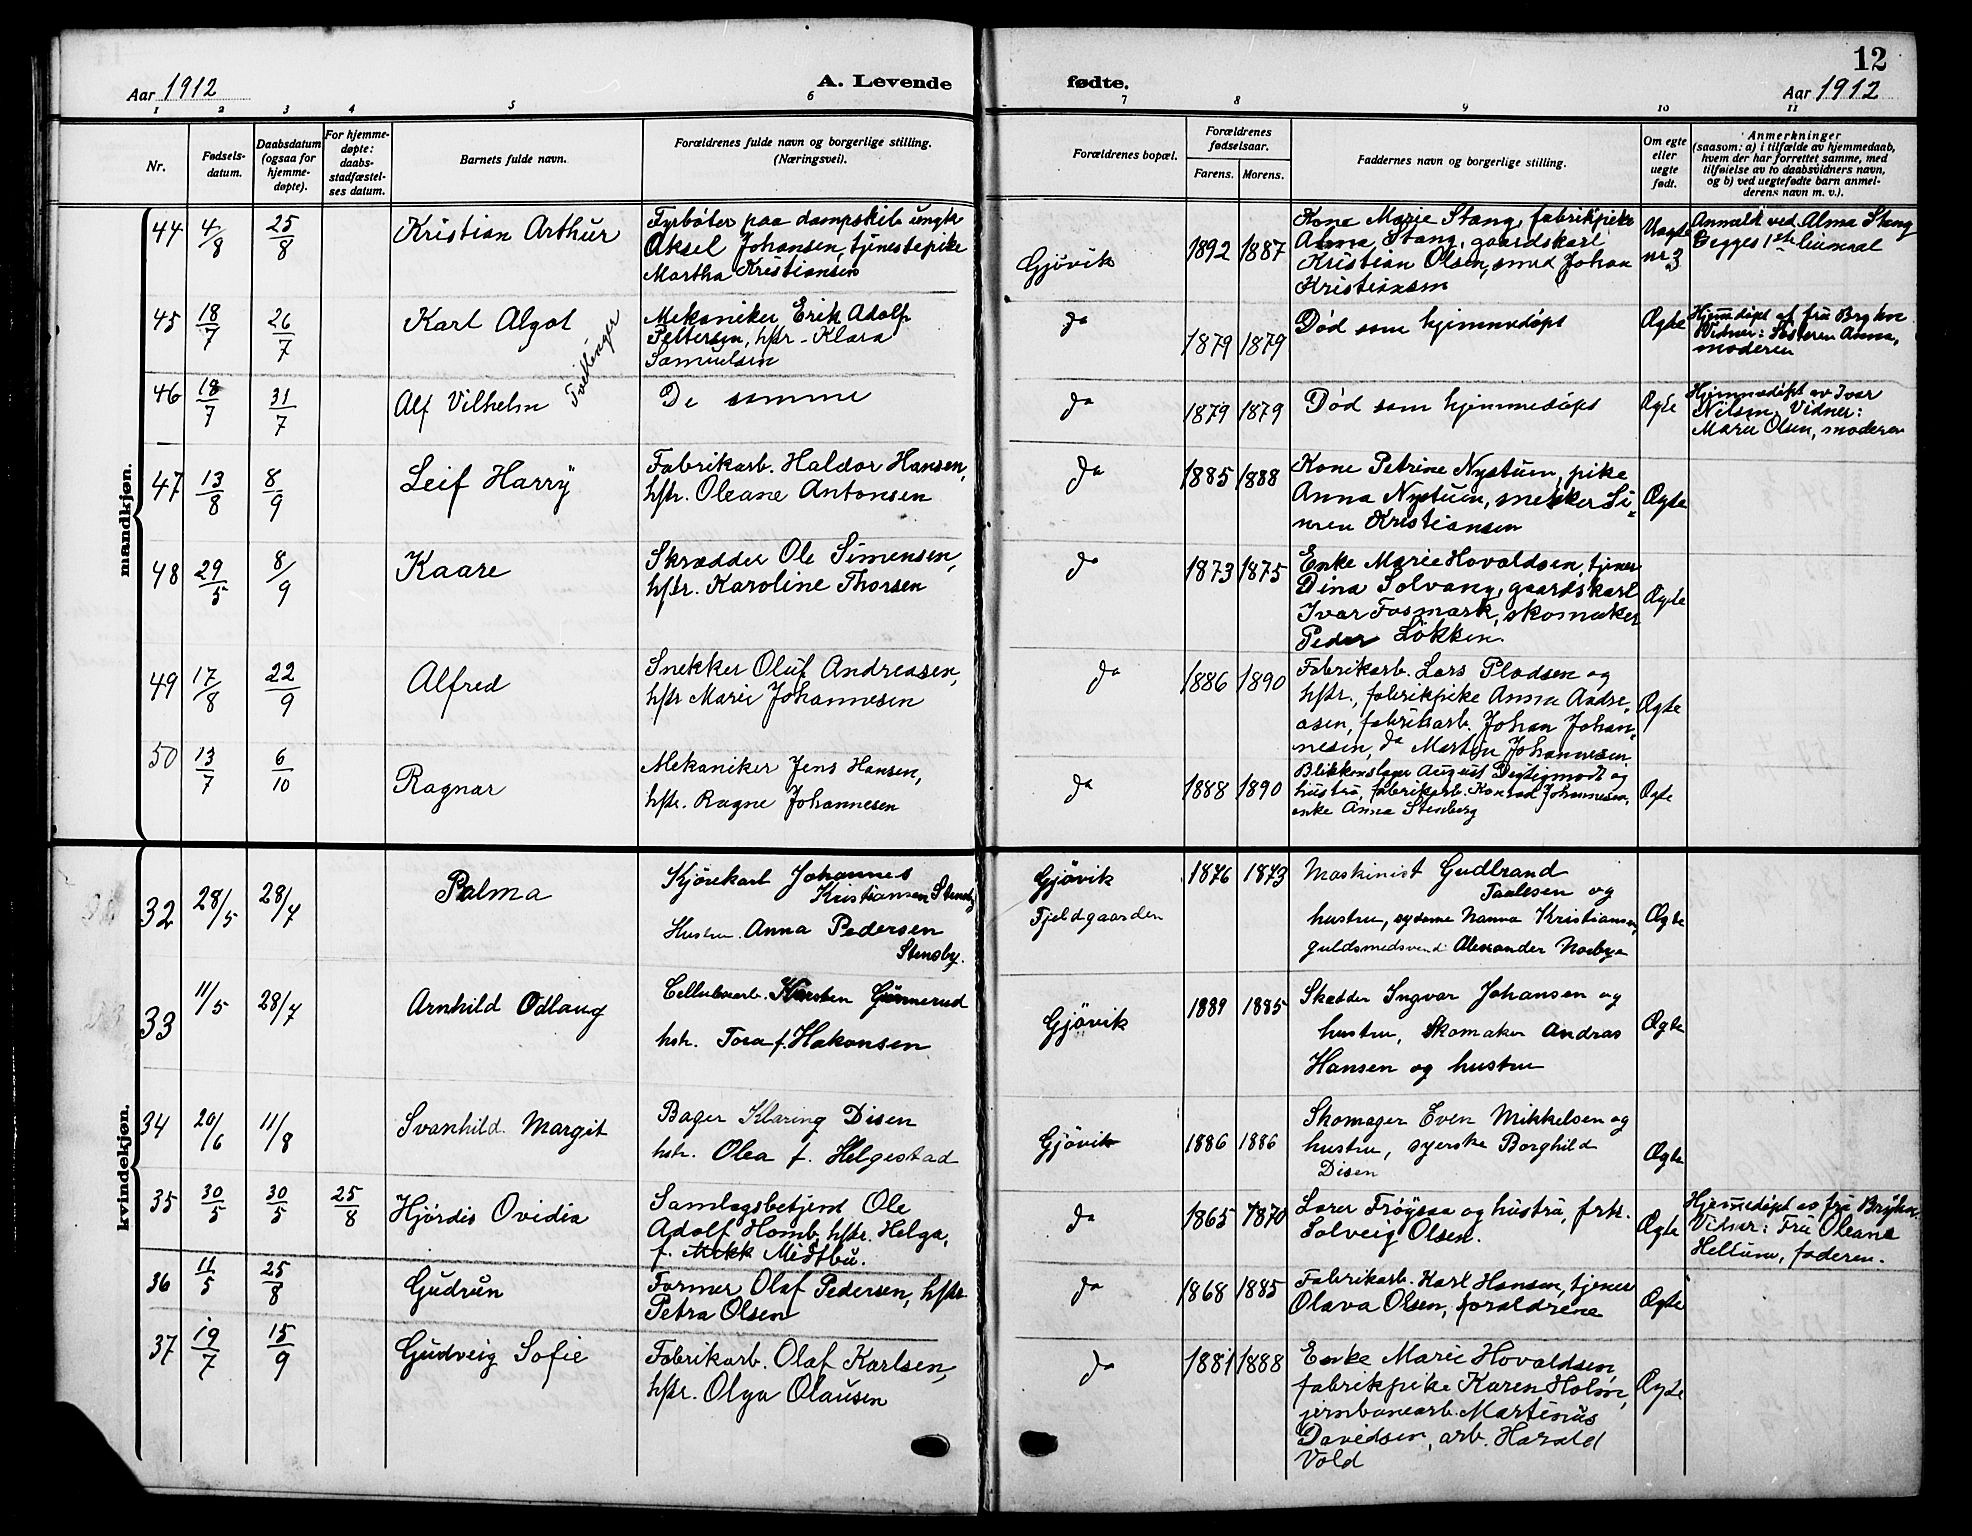 12
Aar 1912
A. Levende
fødte.
Aar 1912
1 2 3 4 5 6 7 8 9 10 11
Nr.
Fødsels-
datum.
Daabsdatum
(ogsaa for
hjemme-
døpte).
For hjemme-
døpte:
daabs-
stadfæstel-
ses datum.
Barnets fulde navn.
Forældrenes fulde navn og borgerlige stilling.
(Næringsvei).
Forældrenes bopæl.
Forældrenes
fødselsaar.
Farens. Morens.
Faddernes navn og borgerlige stilling.
Om egte
eller
uegte
født.
Anmerkninger
(saasom: a) i tilfælde av hjemmedaab,
hvem der har forrettet samme, med
tilføielse av to daabsvidners navn,
og b) ved uegtefødte barn anmel-
derens navn m. v.).
mandkjøn.
44 4/8 25/8 Kristian Arthur
Fyrbøter paa dampskib ungk.
Aksel Johansen, tjenestepike
Martha Kristiansen
Gjøvik 1892 1887
Kone Marie Stang, fabrikpike
Alma Stang, gaardskarl
Kristian Olsen, smed Johan
Kristiansen
Uægte
nr. 3
Anmeldt ved Alma Stang
Begges 1ste leiermaal
45 18/7 26/7 Karl Algot
Tvillinger
Mekaniker Erik Adolf
Pettersen, hstr. Klara
Samuelsen
do 1879 1879
Død som hjemmedøpt
Ægte
Hjemmedøpt af fru Bryhn
Vidner: Søsteren Anna,
moderen
46 18/7 31/7 Alf Vilhelm
De samme
do 1879 1879
Død som hjemmedøpt
Ægte
Hjemmedøpt av Ivar
Nilsen Vidner:
Marie Olsen, moderen
47 13/8 8/9 Leif Harry
Fabrikarb. Haldor Hansen,
hstr. Oleane Antonsen
do 1885 1888
Kone Petrine Nystuen, pike
Anna Nystuen, snekker Si-
men Kristiansen
Ægte
48 29/5 8/9 Kaare
Skrædder Ole Simensen,
hstr. Karoline Thorsen
do 1873 1875
Enke Marie Hovaldsen, tjener
Dina Solvang, gaardskarl
Ivar Fosmark, skomaker
Peder Løkken
Ægte
49 17/8 22/9 Alfred
Snekker Oluf Andreasen,
hstr Marie Johannesen
do 1886 1890
Fabrikarb. Lars Pladsen og
hstr., fabrikpike Anna Andre-
asen, fabrikarb. Johan Johan-
nesen, do Martin Johannesen
Ægte
50 13/7 6/10 Ragnar
Mekaniker Jens Hansen,
hstr. Ragne Johannesen
do 1888 1890
Blikkenslager August Degtigmodt og
hustru, fabrikarb. Konrad Johannesen,
enke Anna Stenberg
Ægte
kvindekjøn.
32 28/5 28/7 Palma
Kjørekarl Johannes
Kristiansen Stensby
Hustru Anna Pedersen
Stensby.
Gjøvik
Fjeldgaarden
1876 1873
Maskinist Gudbrand
Paalesen og
hustru, syderne Nanna Kristiansen,
guldsmedsvend Alexander Norbye
Ægte
33 11/5 28/7 Arnhild Odlaug
Cellulosearb. Karsten Gunnerud
hstr. Tora f. Hakonsen
Gjøvik 1889 1885
Skrædder Ingvar Johansen og
hustru, Skomaker Andras
Hansen og hustru
Ægte
34 20/6 11/8 Svanhild Margit
Bager Klaring Disen
hstr. Olea f. Helgestad
Gjøvik 1886 1886
Skomager Even Mikkelsen og
hustru, syerske Borghild
Disen
Ægte
35 30/5 30/5 25/8 Hjördis Ovidia
Samlagsbetjent Ole
Adolf Homb, hstr. Helga,
f. Midtbu.
do 1865 1870
Lærer Frøysaa og hustru, frk.
Solveig Olsen.
Ægte
Hjemmedøpt av fru Bryhn.
Vidner: Fru Oleane
Hellum, faderen.
36 11/5 25/8 Gudrun
Former Olaf Pedersen, hstr
Petra Olsen
do 1868 1885
Fabrikarb. Karl Hansen, tjener
Olava Olsen, forældrene
Ægte
37 19/7 15/9 Gudveig Sofie
Fabrikarb. Olaf Karlsen,
hstr. Olga Olausen
do 1881 1888
Enke Marie Hovaldsen,
fabrikpike Karen Holm,
jernbanearb. Martinius
Davidsen, arb. Harald
Vold
Ægte